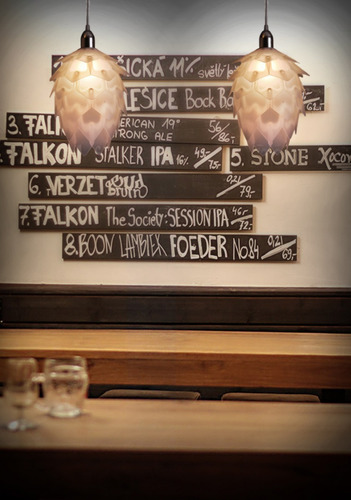 ICKÁ 11% světlý
LEŠICE Bock
3. FAL ERICAN 19° STRONG ALE 56/
FALKON STALKER IPA 16% 49-/75-
5. STONE XOCOV
6. VERZET OUD BRUIN 0,21/79,-
7. FALKON The Society: SESSION IPA 46-/72,-
8. BOON LAMBIEK FOEDER No 84 0,21/69,-